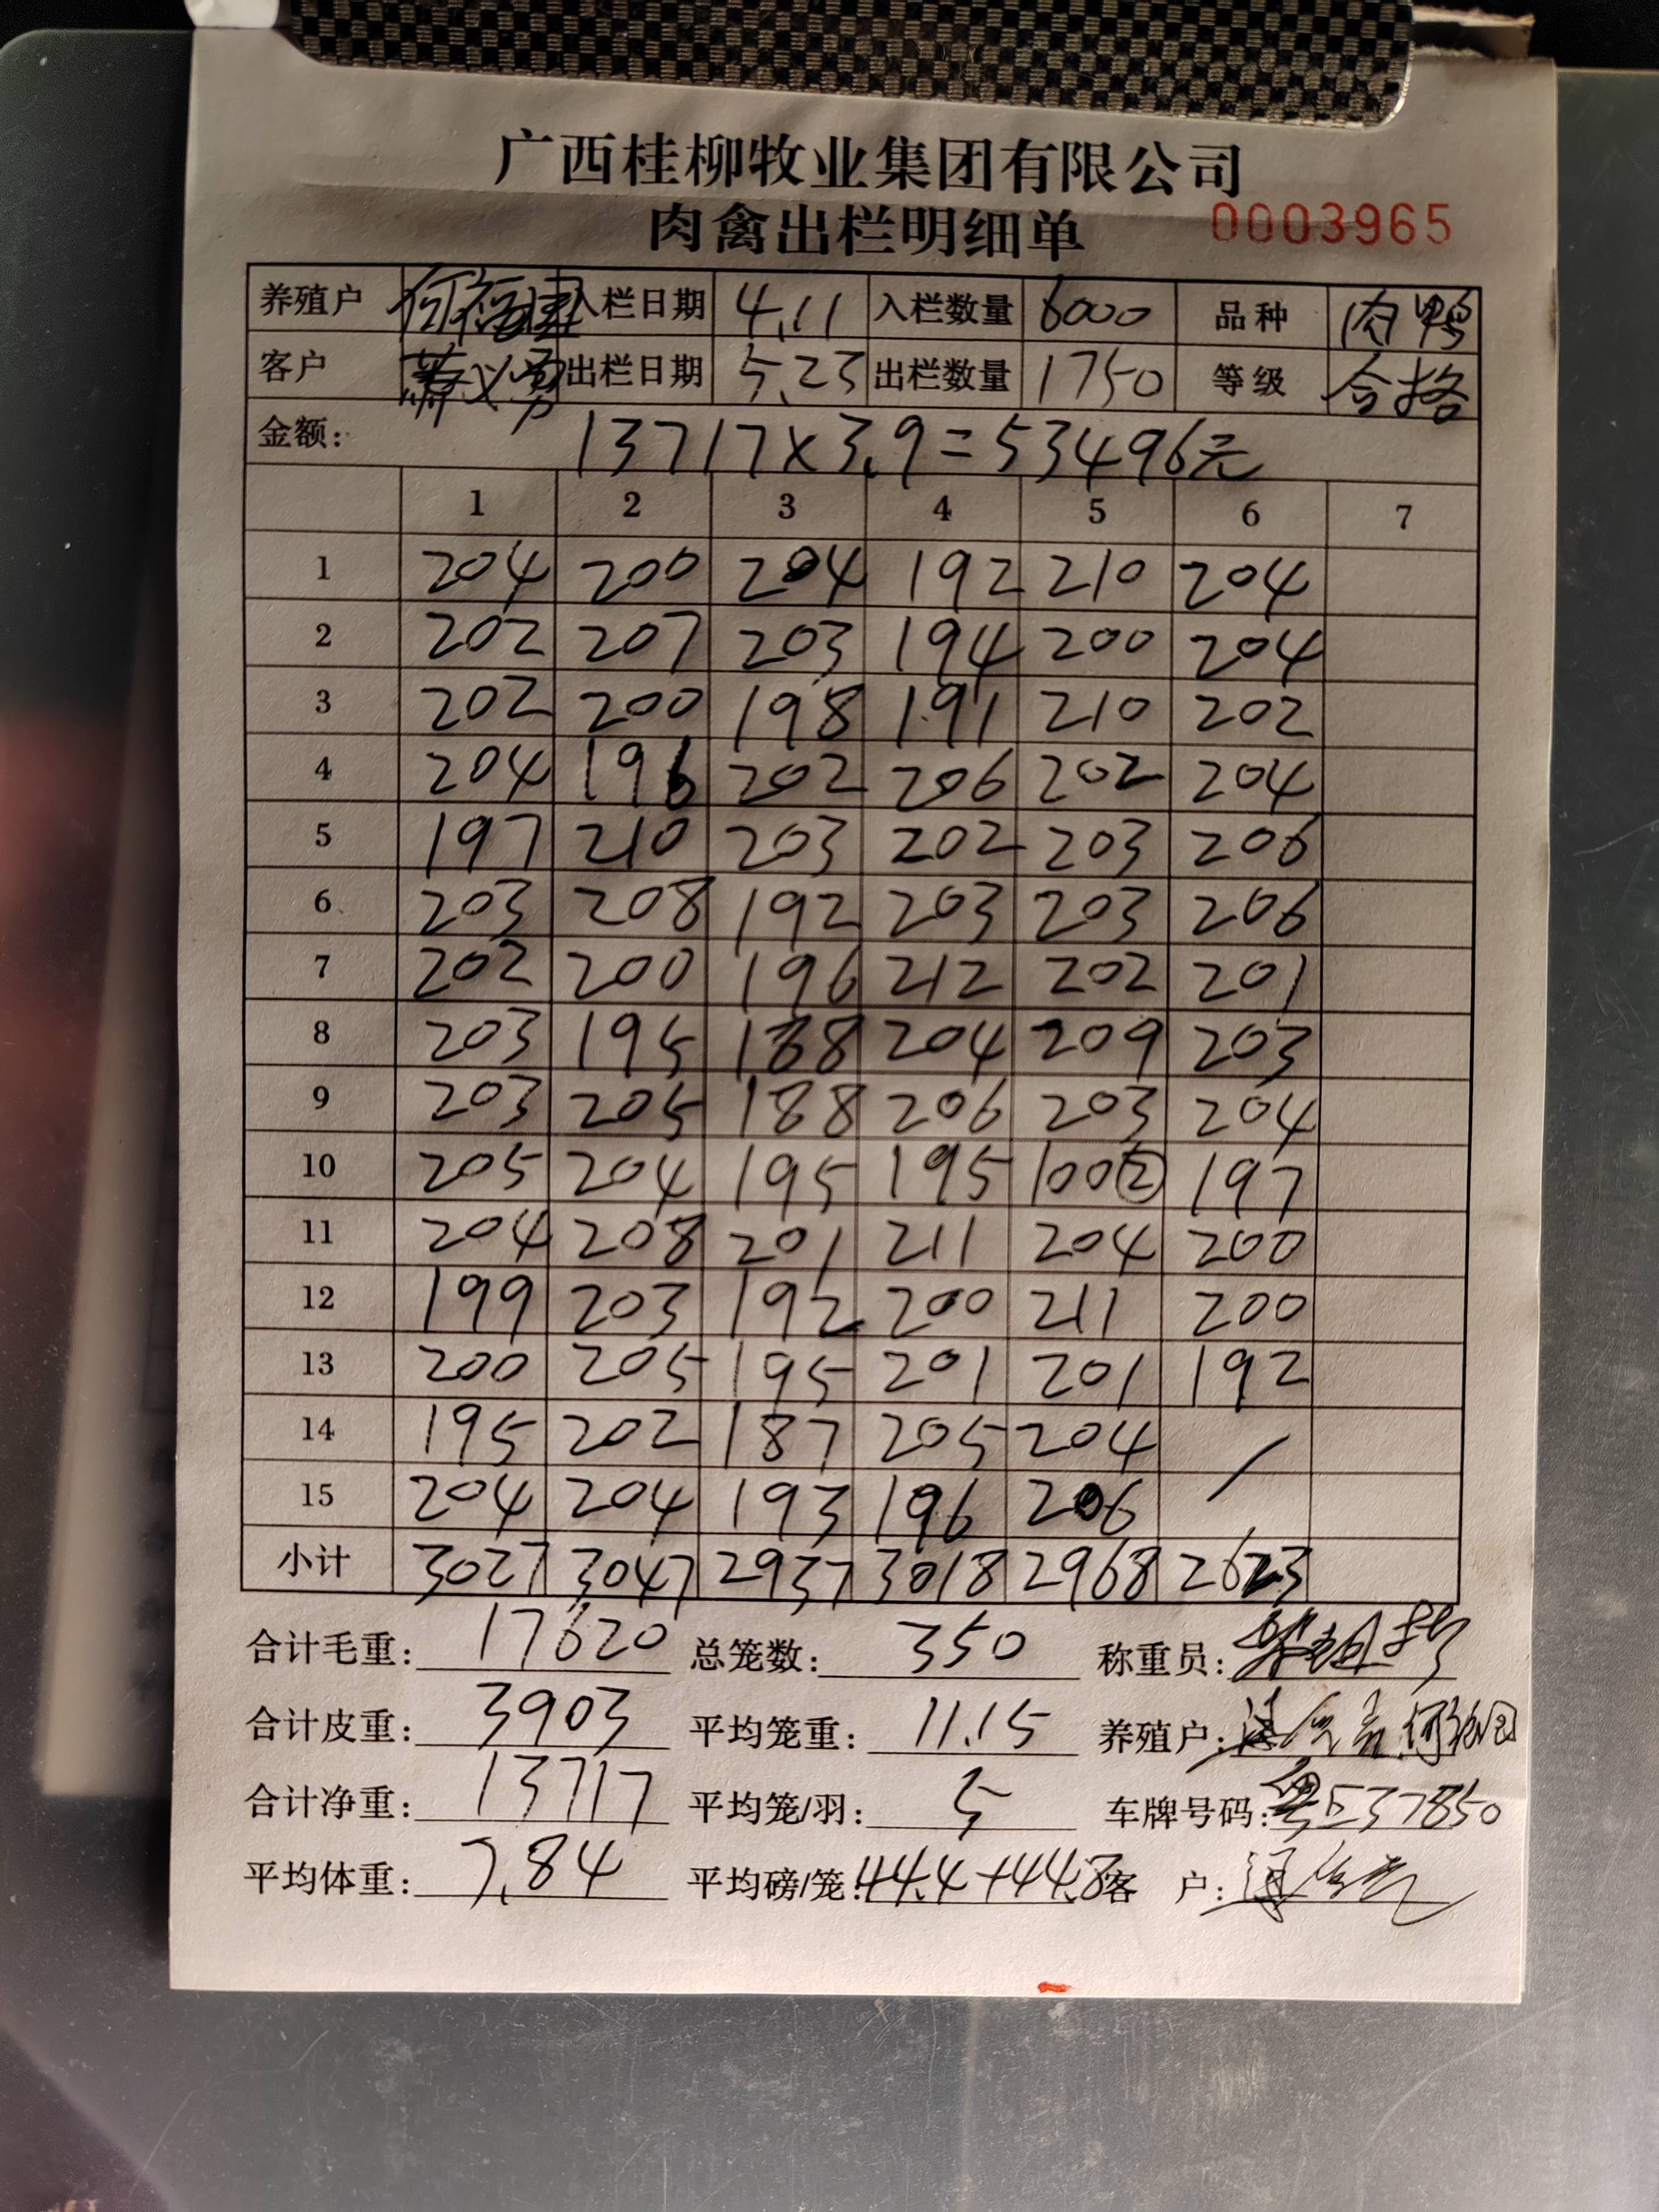 广西桂柳牧业集团有限公司
肉禽出栏明细单 0003965
养殖户 入栏日期 4.11 入栏数量 6000 品种 肉鸭
客户 萧义勇 出栏日期 5.23 出栏数量 1750 等级 合格
金额: 13717×3.9=53496元
1 2 3 4 5 6 7
1 204 200 204 192 210 204
2 202 207 203 194 200 204
3 202 200 198 191 210 202
4 204 196 202 206 202 204
5 197 210 203 202 203 206
6 203 208 192 203 203 206
7 202 200 196 212 202 201
8 203 195 188 204 209 203
9 203 205 188 206 203 204
10 205 204 195 195 100② 197
11 204 208 201 211 204 200
12 199 203 192 200 211 200
13 200 205 195 201 201 192
14 195 202 187 205 204 /
15 204 204 193 196 206
小计 3027 3047 2937 3018 2968 2623
合计毛重: 17620 总笼数: 350 称重员:
合计皮重: 3903 平均笼重: 11.15 养殖户:
合计净重: 13717 平均笼/羽: 5 车牌号码: 粤E37850
平均体重: 7.84 平均磅/笼: 44.4+44.8 客 户: